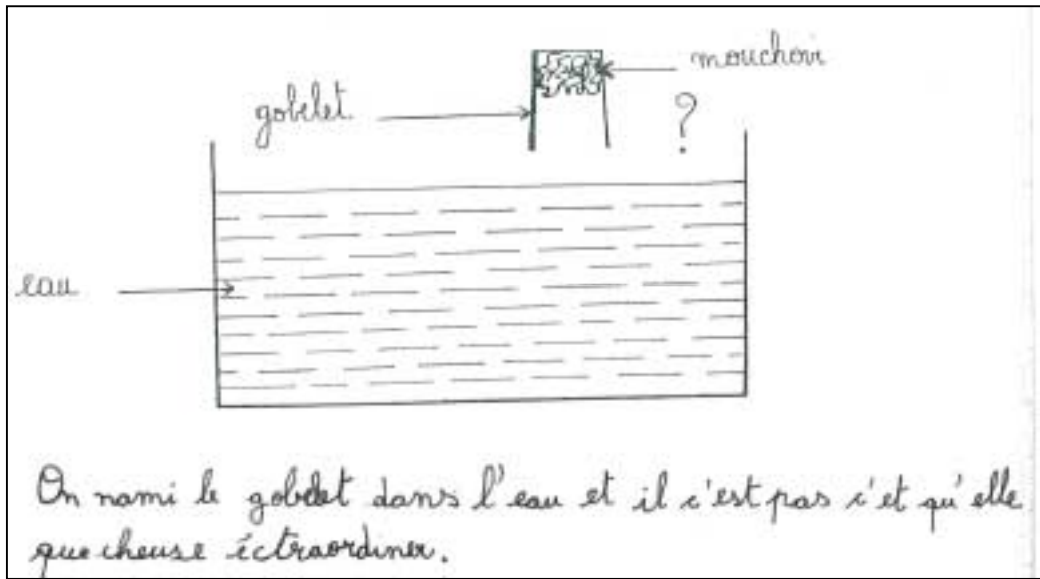 mouchoir
gobelet
?
eau
On nami le gobelet dans l'eau et il c'est pas c'et qu'elle
que cheuse éctraordiner.